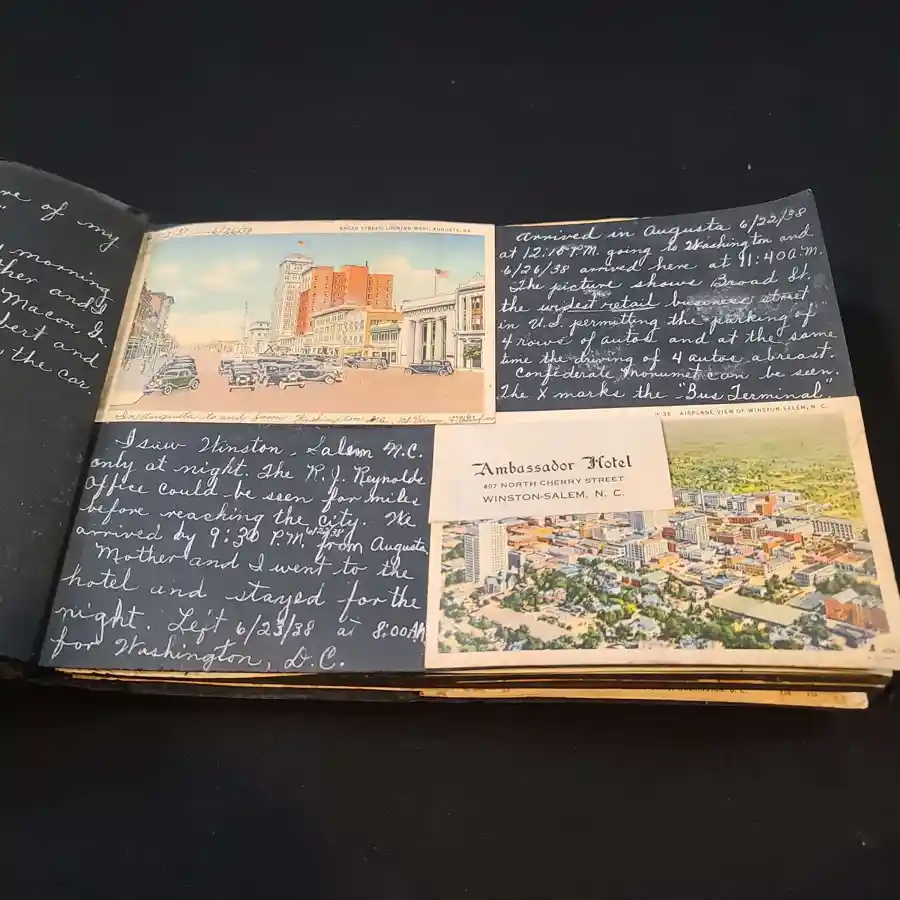 re of my
"
morning
ther and
Macon, Ga.
bert and
the car.
6/26/38
BROAD STREET, LOOKING WEST, AUGUSTA, GA.
In Augusta to and from Washington,
Arrived in Augusta 6/22/38
at 12:15 P.M. going to Washington and
6/26/38 arrived here at 11:40 A.M.
The picture shows Broad St.
the widest retail business street
in U.S. permitting the parking of
4 rows of autos and at the same
time the driving of 4 autos abreast.
Confederate Monument can be seen.
The X marks the "Bus Terminal".
I saw Winston, Salem N.C.
only at night. The R. J. Reynolds
Office could be seen for miles
before reaching the city. We
arrived by 9:30 P.M. 6/22/38 from Augusta.
Mother and I went to the
hotel and stayed for the
night. Left 6/23/38 at 8:00 AM
for Washington, D.C.
AIRPLANE VIEW OF WINSTON-SALEM, N. C.
Ambassador Hotel
407 NORTH CHERRY STREET
WINSTON-SALEM, N. C.